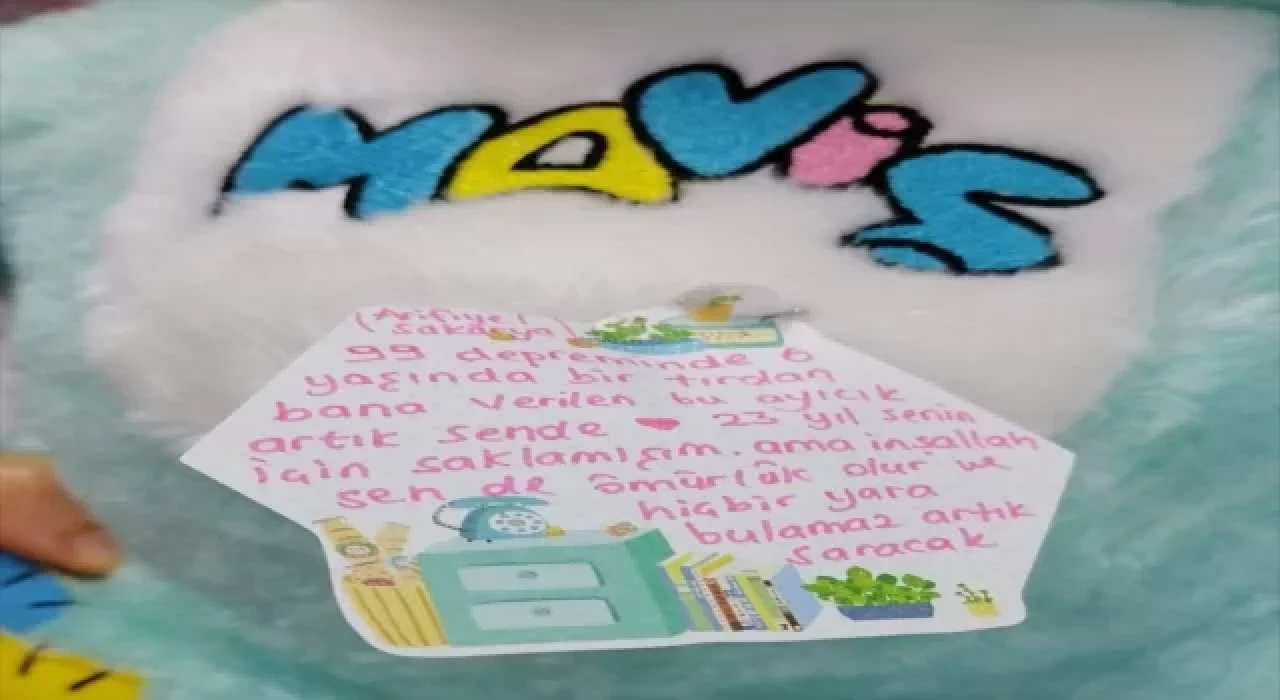 MAViŞ
(Arifiye/
Sakarya)
99 depreminde 6
yaşında bir tırdan
bana verilen bu ayıcık
artık sende ♥ 23 yıl senin
için saklamışım. ama inşallah
sen de ömürlük olur ve
hiçbir yara
bulamaz artık
saracak